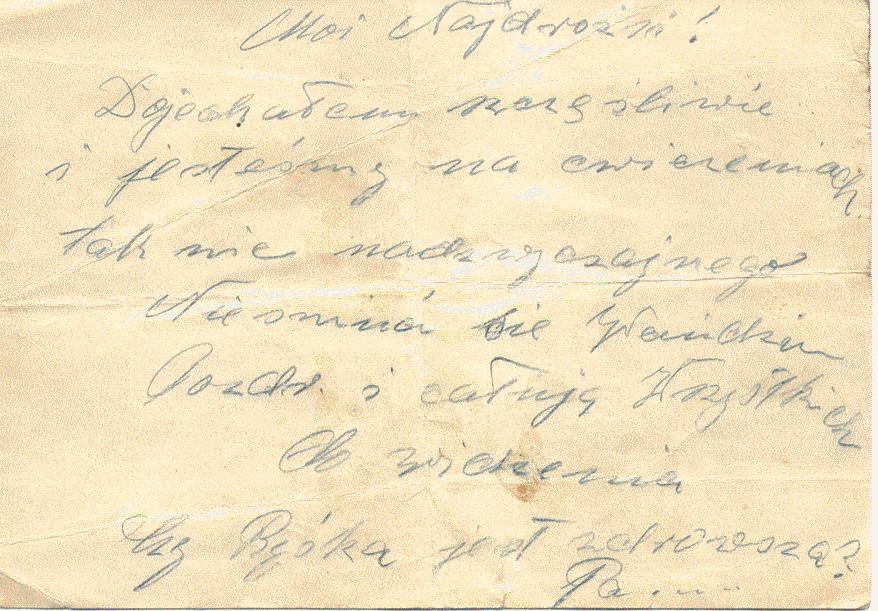 Moi Najdrożsi!
Dojechałem szczęśliwie
i jesteśmy na cwiczeniach.
tak nic nadzwyczajnego
Niesmuć sie
Pozdr. i całuję Wszystkich
Do widzenia
Czy jest zdrowsza?
Pa....